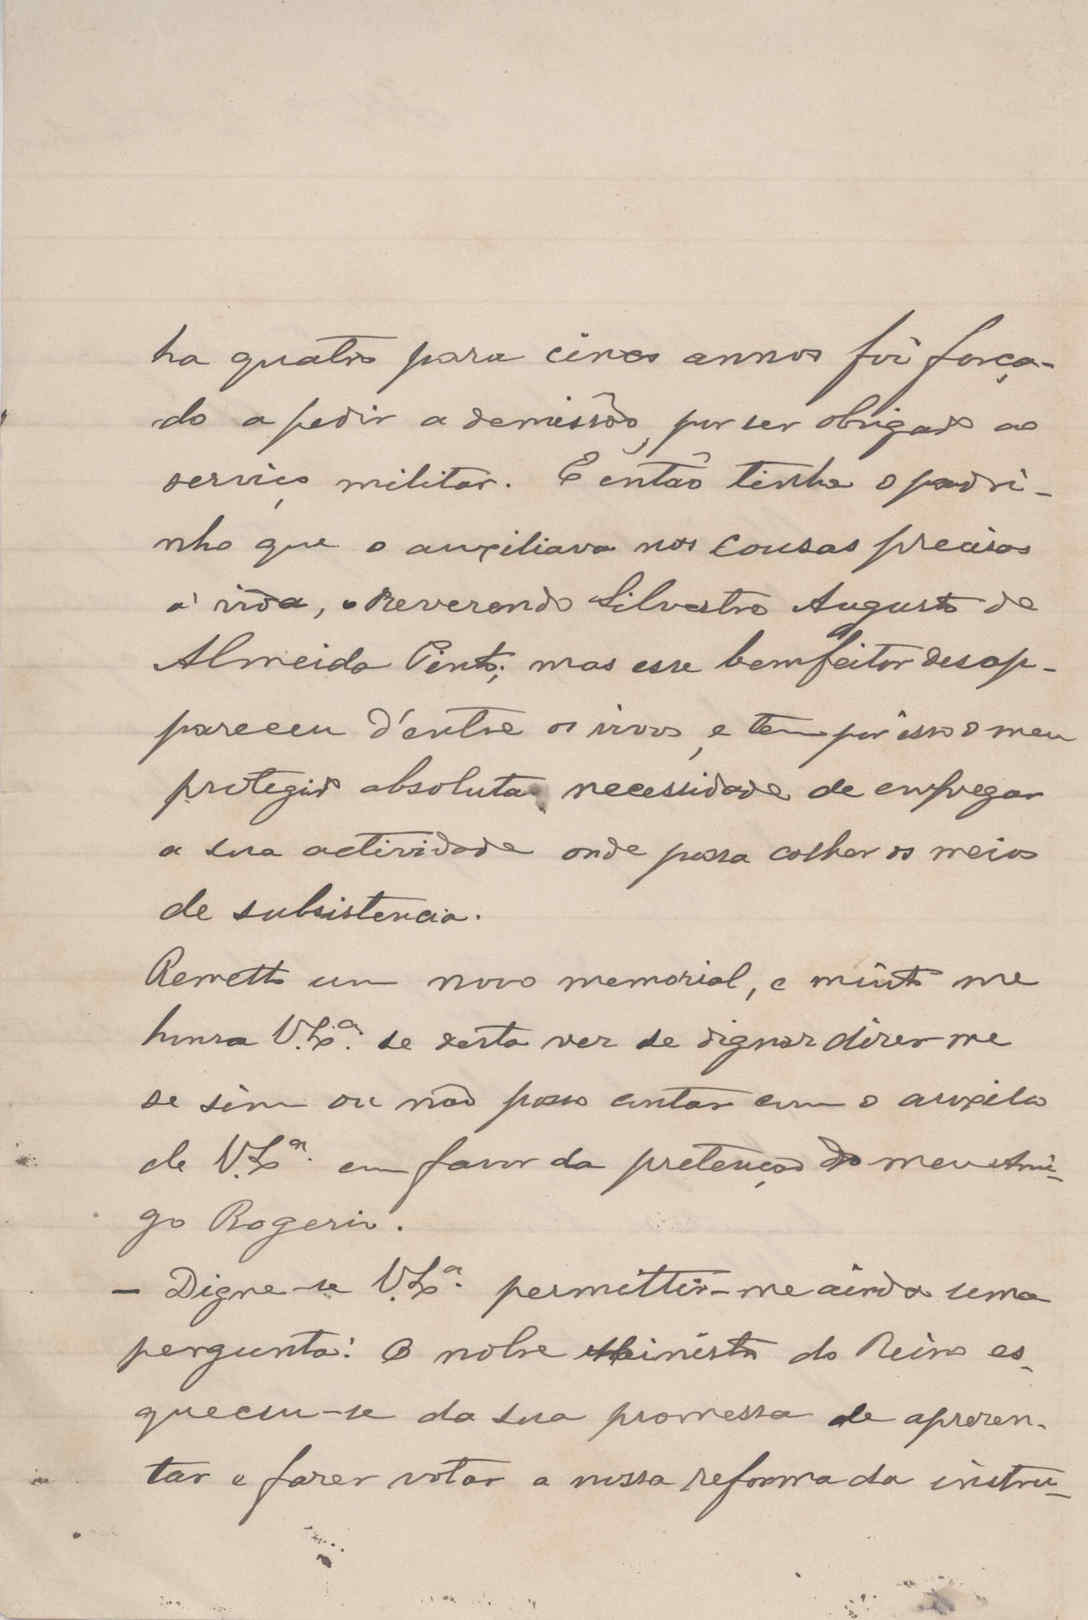 ha quatro para cinco annos foi força-
do a pedir a demissão, por ser obrigado ao
serviço militar. E então tinha o padri-
nho que o auxiliava nas cousas precisas
á vida, o Reverendo Silvestre Augusto de
Almeida Pinto; mas esse bemfeitor desap-
pareceu d'entre os vivos, e tem por isso o meu
protegido absoluta necessidade de empregar
a sua actividade onde possa colher os meios
de subsistencia.
Remetto um novo memorial, e muito me
honra V. Exª. se desta vez se dignar dizer-me
se sim ou não posso contar com o auxilio
de V. Exª. em favor da pretenção do meu ami-
go Rogerio.
- Digne-se V. Exª. permittir-me ainda uma
pergunta: O nobre Ministro do Reino es-
queceu-se da sua promessa de aprezen-
tar e fazer votar a nossa reforma da instru-